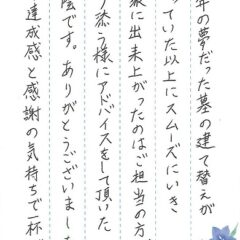 年の夢だった墓の建て替えが
っていた以上にスムーズにいき
派に出来上がったのはご担当の方
り添う様にアドバイスをして頂いた
陰です。ありがとうございました
達成感と感謝の気持ちで一杯